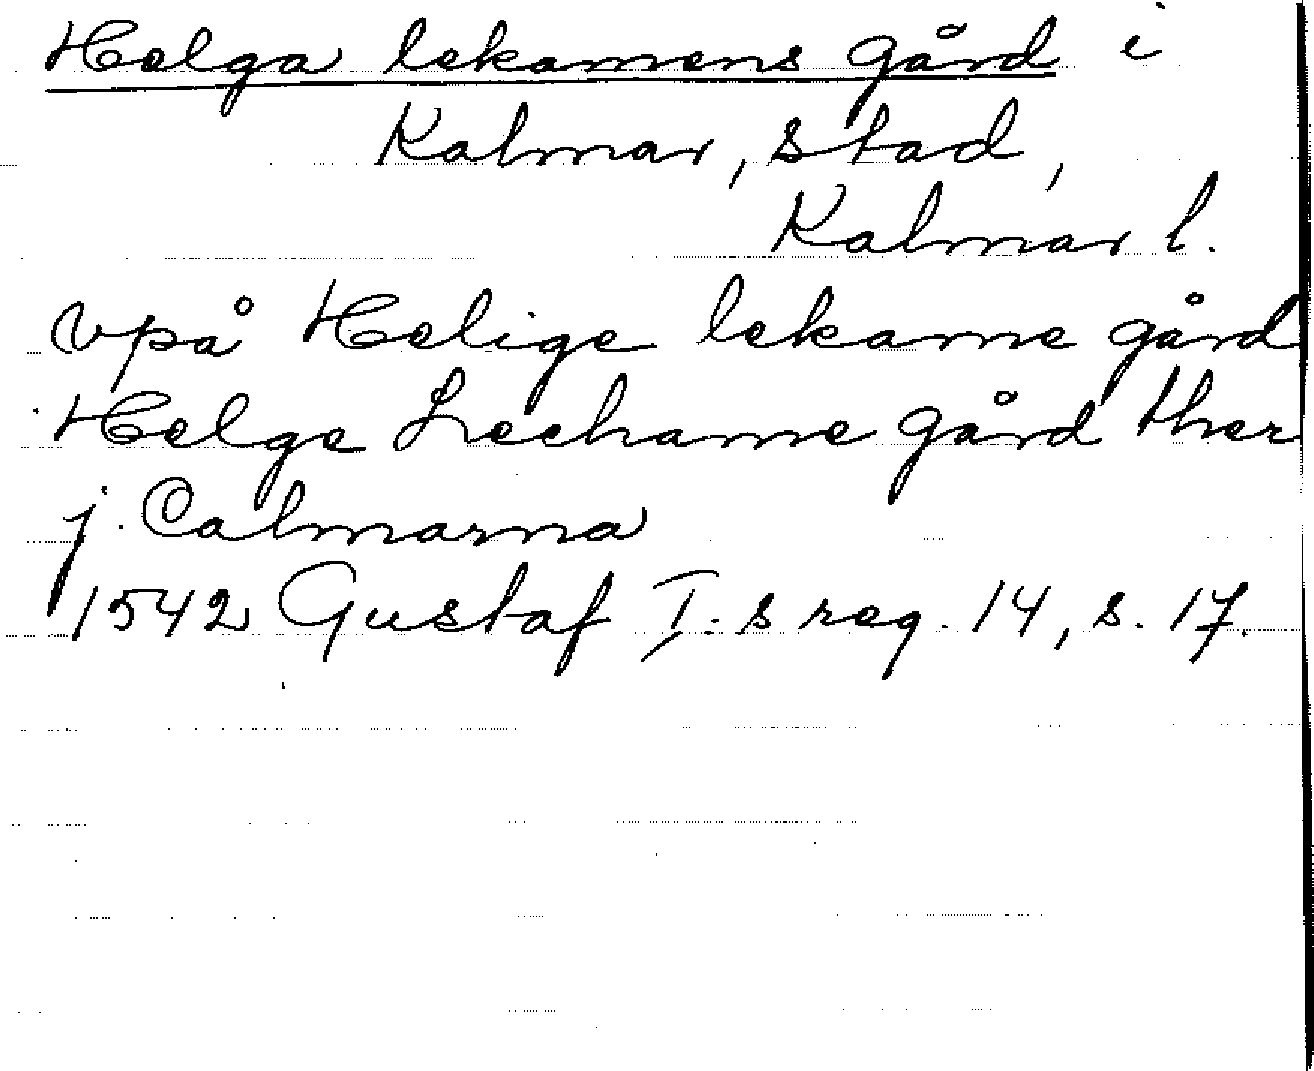 Helga lekamens gård i
Kalmar, stad,
Kalmar l.
vpå Helige lekame gård
Helge Lechame gård ther
j Calmarna
1542 Gustaf I.s reg. 14, s. 17.